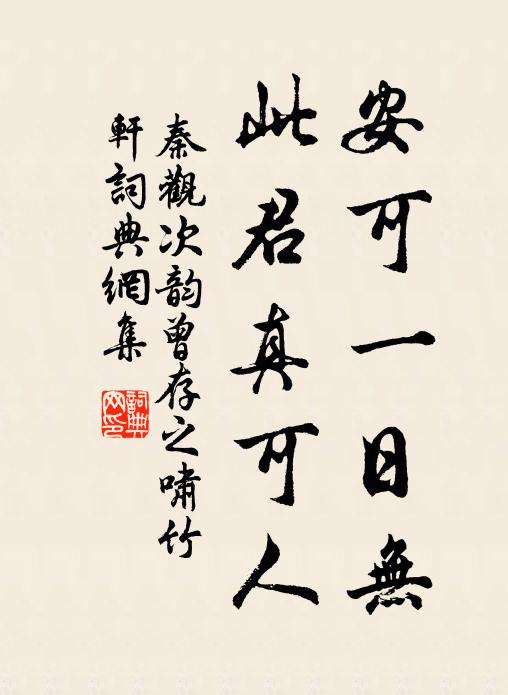 安可一日無
此君真可人
秦觀次韵曾存之嘯竹
軒詞典網集
詞典
网印